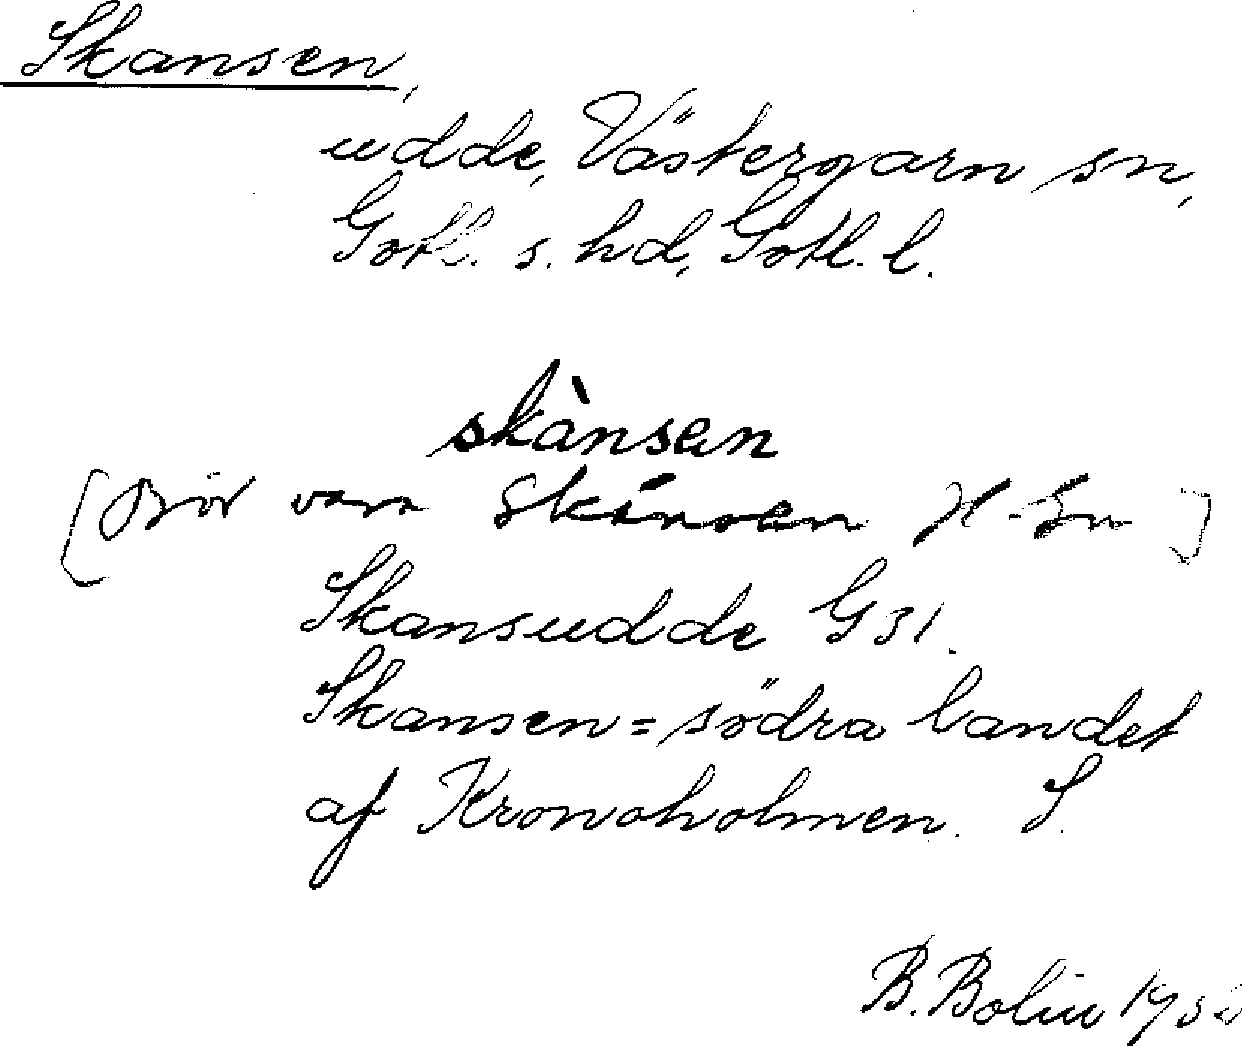 Skansen,
udde, Västergarn sn,
Gotl. s. hd, Gotl. l.
skànsen
[Bör vara Skánsen H-Gn]
Skansudde G 31.
Skansen = södra landet
af Kronoholmen. S.
B. Bolin 193